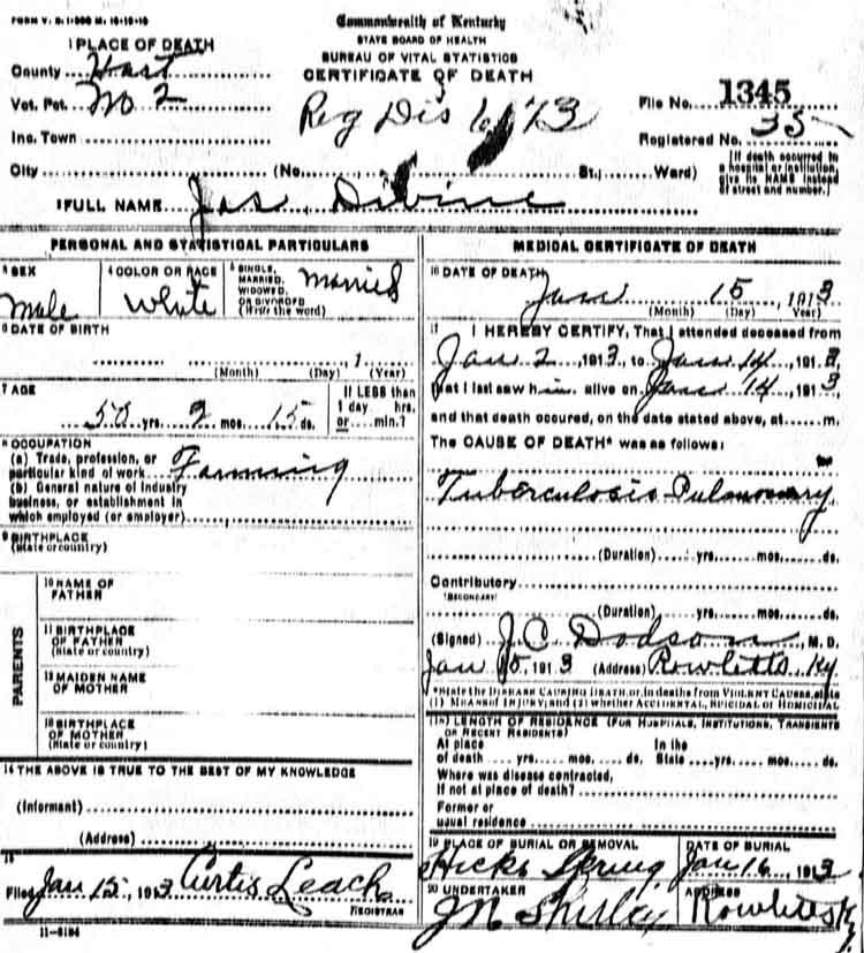 FORM V. S. 1-500 M. 10-10-10
Commonwealth of Kentucky
STATE BOARD OF HEALTH
BUREAU OF VITAL STATISTICS
CERTIFICATE OF DEATH
1 PLACE OF DEATH
County Hart
Vot. Pct. No 2
Reg Dis 6173
File No. 1345
Inc. Town
Registered No. 35
City (No. St.; Ward)
[If death occurred in a hospital or institution, give its NAME instead of street and number.]
2 FULL NAME Jas. Divine
PERSONAL AND STATISTICAL PARTICULARS
3 SEX male
4 COLOR OR RACE white
5 SINGLE, MARRIED, WIDOWED, OR DIVORCED (Write the word) married
6 DATE OF BIRTH
(Month) (Day) , 1 (Year)
7 AGE
50 yrs. 2 mos. 15 ds.
If LESS than 1 day hrs. or min.?
8 OCCUPATION
(a) Trade, profession, or particular kind of work Farming
(b) General nature of industry business, or establishment in which employed (or employer)
9 BIRTHPLACE
(State or country)
PARENTS
10 NAME OF FATHER
11 BIRTHPLACE OF FATHER
(State or country)
12 MAIDEN NAME OF MOTHER
13 BIRTHPLACE OF MOTHER
(State or country)
14 THE ABOVE IS TRUE TO THE BEST OF MY KNOWLEDGE
(Informant)
(Address)
15
Filed Jan 15, 1913 Curtis Leach
REGISTRAR
11-5184
MEDICAL CERTIFICATE OF DEATH
16 DATE OF DEATH
Jan 15, 1913
(Month) (Day) Year)
17 I HEREBY CERTIFY, That I attended deceased from
Jan 2, 1913, to Jan 14, 1913,
that I last saw him alive on Jan 14, 1913
and that death occured, on the date stated above, at m.
The CAUSE OF DEATH* was as follows:
Tuberculosis Pulmonary
(Duration) yrs. mos. ds.
Contributory
(SECONDARY)
(Duration) yrs. mos. ds.
(Signed) J. C. Dodson, M. D.
Jan 15, 1913 (Address) Rowletts, Ky
*State the DISEASE CAUSING DEATH, or, in deaths from VIOLENT CAUSES, state
(1) MEANS OF INJURY; and (2) whether ACCIDENTAL, SUICIDAL or HOMICIDAL
18 LENGTH OF RESIDENCE (FOR HOSPITALS, INSTITUTIONS, TRANSIENTS
OR RECENT RESIDENTS)
At place of death yrs. mos. ds. In the State yrs. mos. ds.
Where was disease contracted,
If not at place of death?
Former or
usual residence
19 PLACE OF BURIAL OR REMOVAL
Hicks Spring
DATE OF BURIAL
Jan 16, 1913
20 UNDERTAKER
J N Shirley
ADDRESS
Rowletts Ky.